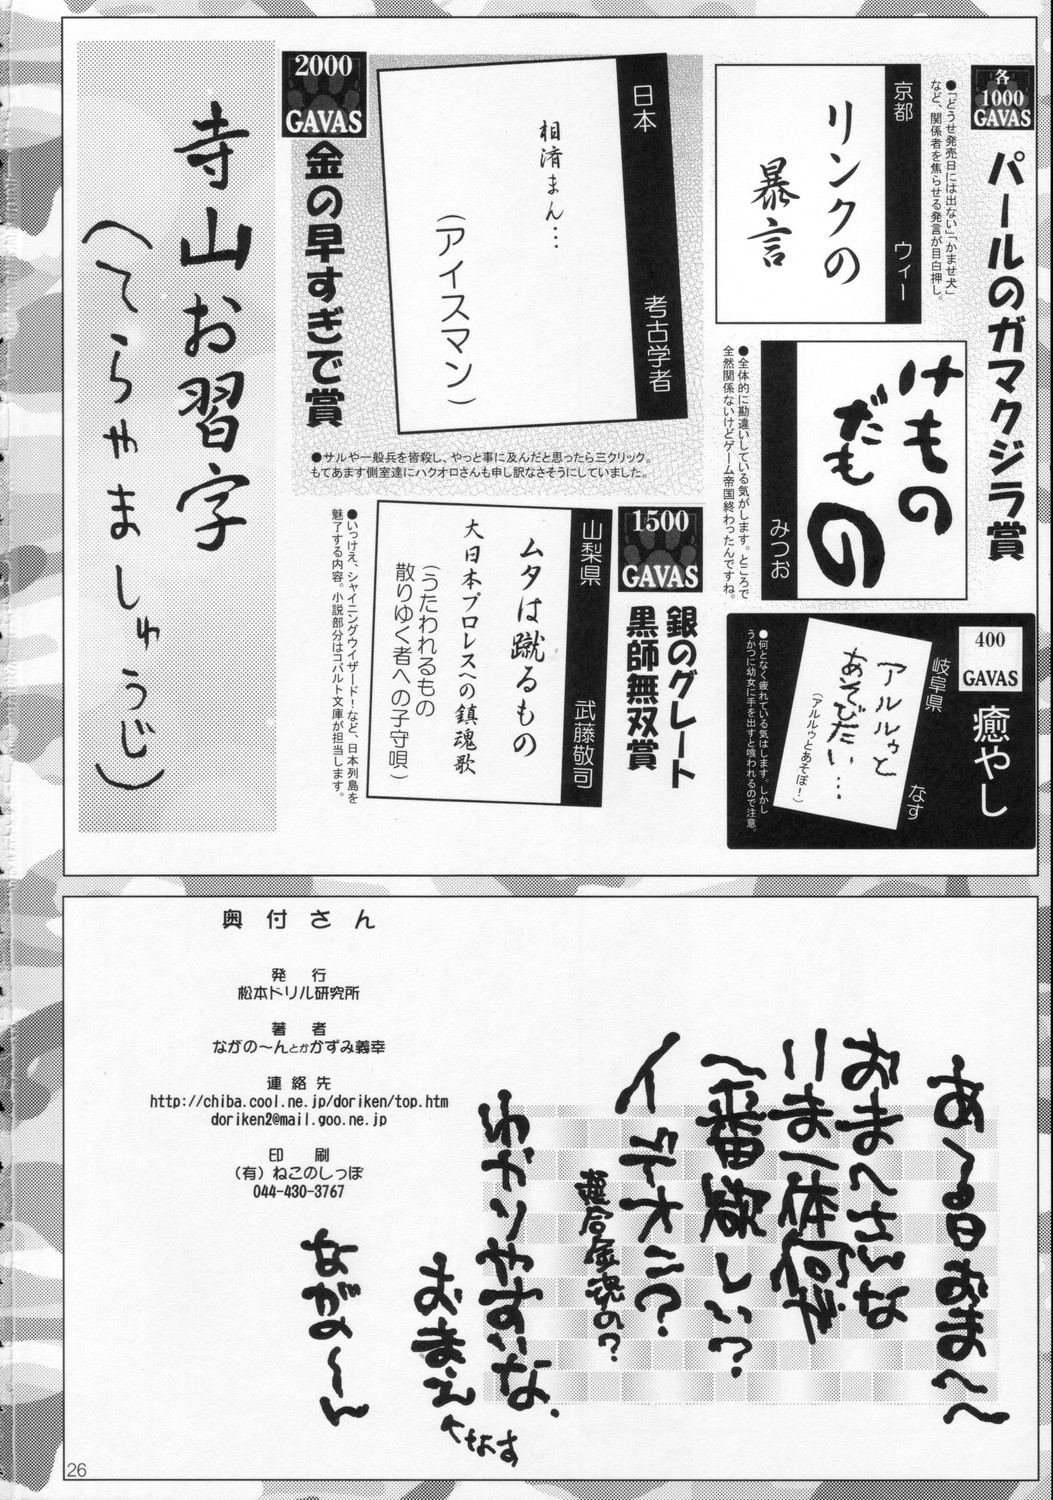 各
1000
GAVAS
パールのガマクジラ賞
京都
ウィー
リンクの
暴言
●「どうせ発売日には出ない」「かませ犬」
など、関係者を焦らせる発言が目白押し。
けもの
だもの
みつお
●全体的に勘違いしている気がします。ところで
全然関係ないけどゲーム帝国終わったんですね。
400
GAVAS
癒やし
岐阜県
なす
アルルゥと
あそびたい…
(アルルゥとあそぼ!)
●何となく疲れている気はします。しかし
うかつに幼女に手を出すと喰われるので注意。
2000
GAVAS
金の早すぎで賞
日本
考古学者
相済まん…
(アイスマン)
●サルや一般兵を皆殺し、やっと事に及んだと思ったら三クリック。
もてあます側室達にハクオロさんも申し訳なさそうにしていました。
1500
GAVAS
銀のグレート
黒師無双賞
山梨県
武藤敬司
ムタは蹴るもの
大日本プロレスへの鎮魂歌
(うたわれるもの
散りゆく者への子守唄)
●いっけえ、シャイニングウィザード!など、日本列島を
魅了する内容。小説部分はコバルト文庫が担当します。
寺山お習字
(てらやましゅうじ)
奥付さん
発行
松本ドリル研究所
著者
ながの〜んとかかずみ義幸
連絡先
http://chiba.cool.ne.jp/doriken/top.htm
doriken2@mail.goo.ne.jp
印刷
(有)ねこのしっぽ
044-430-3767
ある日おま〜へ〜
おまへさんな
いま一体何が
一番欲しい?
イデオン?
超合金魂の?
わかりやすいな、
おまえ
へなす
ながの〜ん
26